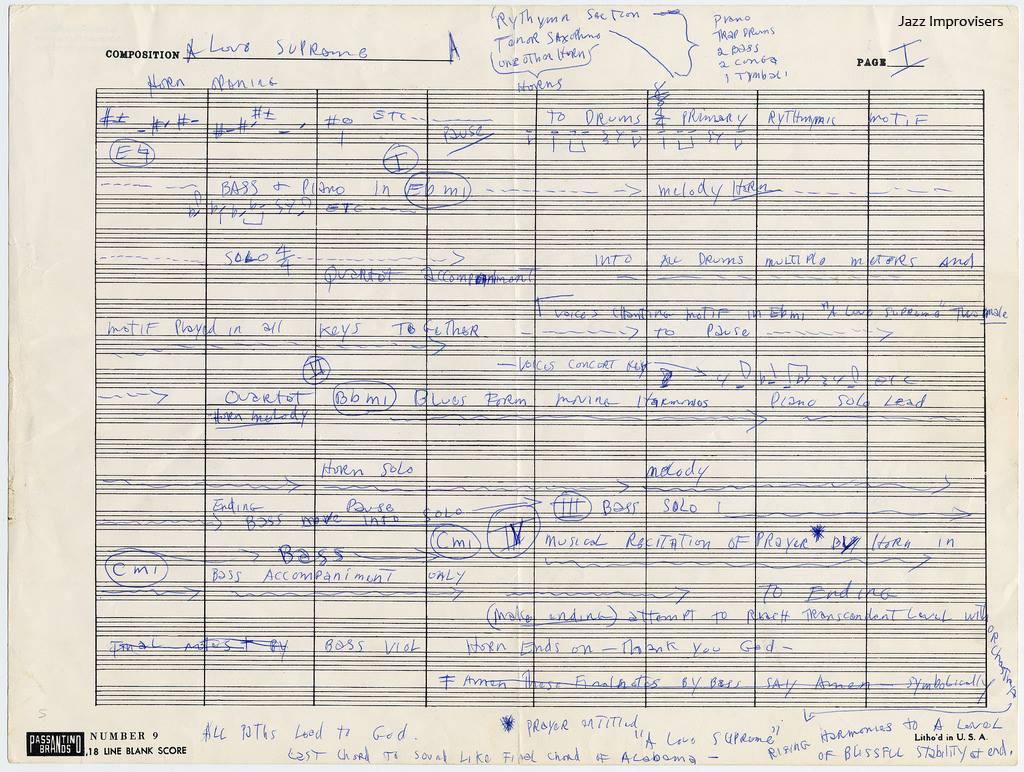 Jazz Improvisers
COMPOSITION A Love Supreme A
Rythymn Section
Tenor Saxophone
one other Horn
Horns
Piano
Trap Drums
2 Bass
2 Conga
1 Tymbali
PAGE I
Horn opening
ETC Pause To Drums Primary Rythmic motif
E♮ I
Bass + Piano in Ebmi melody Horn
ETC
Solo 4/4 into all Drums multiple meters and
Quartet accompaniment
voices chanting motif in Ebmi "A Love Supreme" Two male
motif Played in all keys Together to Pause
II Voices concert key etc
Quartet Bbmi Blues Form moving Harmonies Piano Solo Lead
Horn melody
Horn Solo melody
Ending Pause
Bass move into solo III Bass Solo 1
Cmi IV musical Recitation OF Prayer * By Horn in
Bass
Cmi Bass Accompaniment only
To Ending
(make ending) attempt to Reach Transcendent Level with
orchestra
Final notes By Bass Viol Horn Ends on — Thank you God —
Amen These Final notes By Bass SAY Amen symbolically
rising Harmonies to A Level
OF BLISSFUL Stability at end.
5
PASSANTINO BRANDS
NUMBER 9
18 LINE BLANK SCORE
ALL Paths Lead to God.
* Prayer entitled
"A Love Supreme"
Last Chord To Sound Like Final Chord of Alabama —
Litho'd in U. S. A.